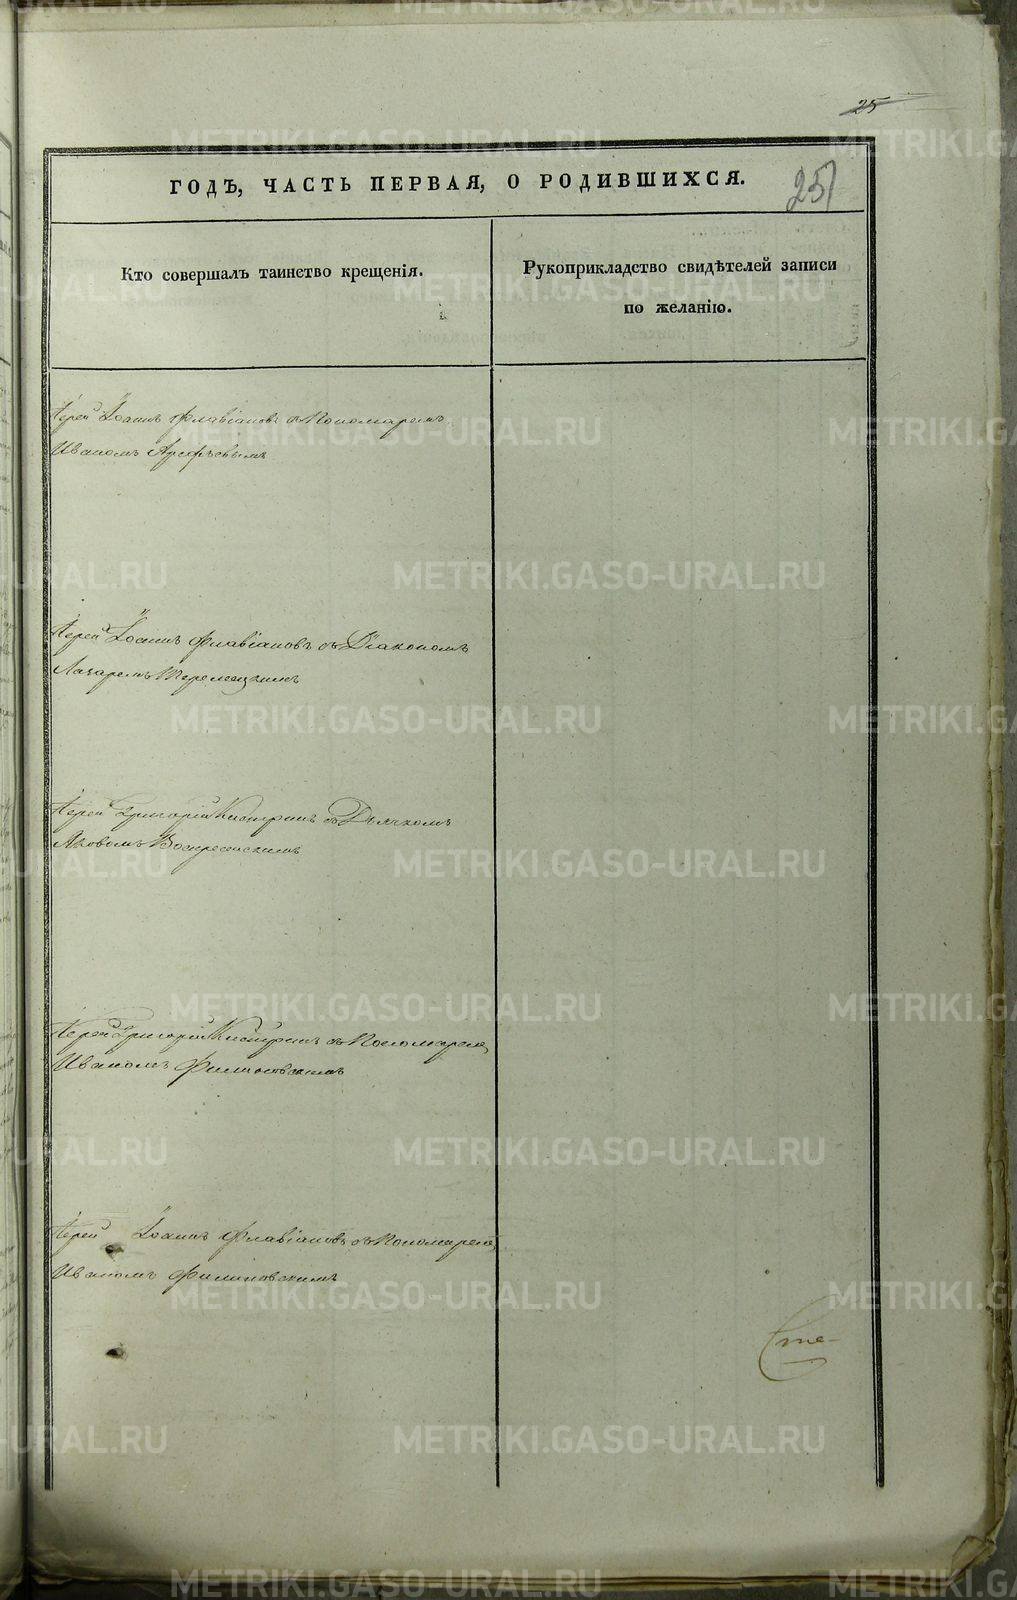 25
ГОДЪ, ЧАСТЬ ПЕРВАЯ, О РОДИВШИХСЯ.
25
Кто совершалъ таинство крещенія.
Рукоприкладство свидѣтелей записи
по желанію.
Іерей Іоаннъ Флавіановъ съ Пономаремъ
Иваномъ Арефьевымъ
Іерей Іоаннъ Флавіановъ съ Діакономъ
Лазаремъ
Іерей Григорій съ Дьячкомъ
Яковомъ Воскресенскимъ
Іерей Григорій съ Пономаремъ
Иваномъ Филиповскимъ
Іерей Іоаннъ Флавіановъ съ Пономаремъ
Иваномъ Филиповскимъ
METRIKI.GASO-URAL.RU